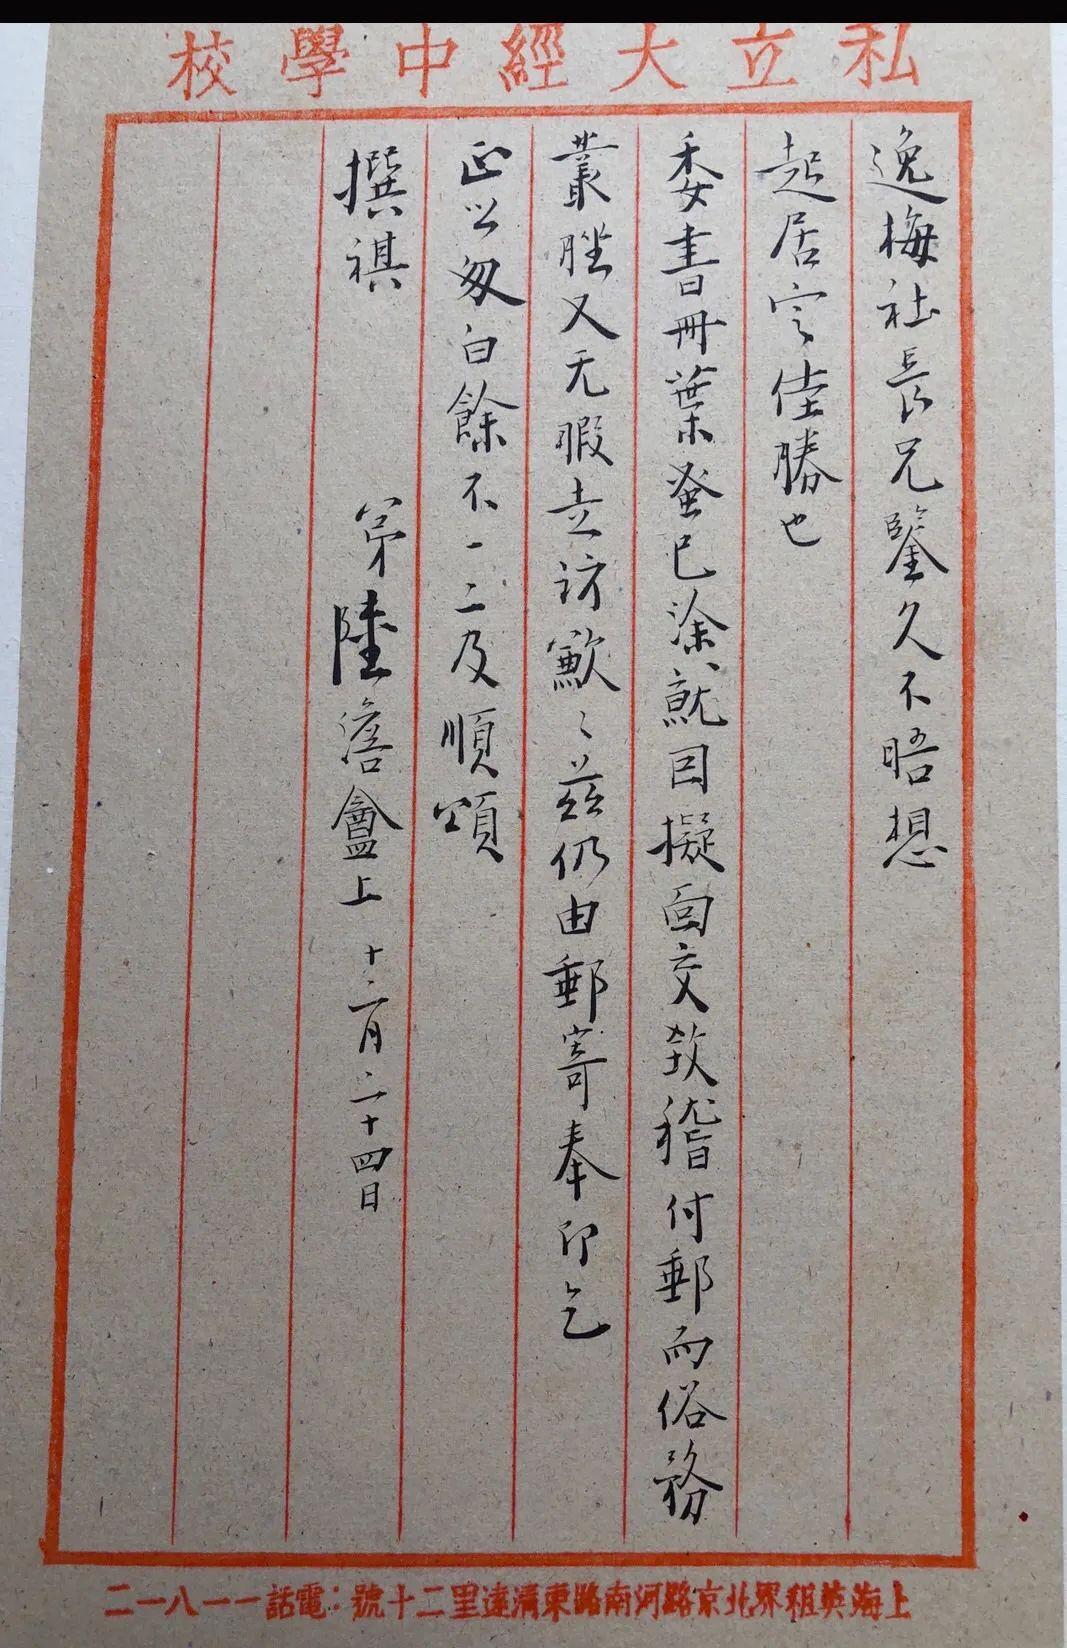 私立大經中學校
逸梅社長兄鑒久不晤想
起居定佳勝也
委書冊葉蚤已塗就因擬面交致稽付郵而俗務
叢脞又无暇走訪歉〻茲仍由郵寄奉印乞
正以匆白餘不一二及順頌
撰祺
弟陸澹盦上 十二月二十四日
上海英租界北京路河南路東清遠里二十號：電話一一八一二